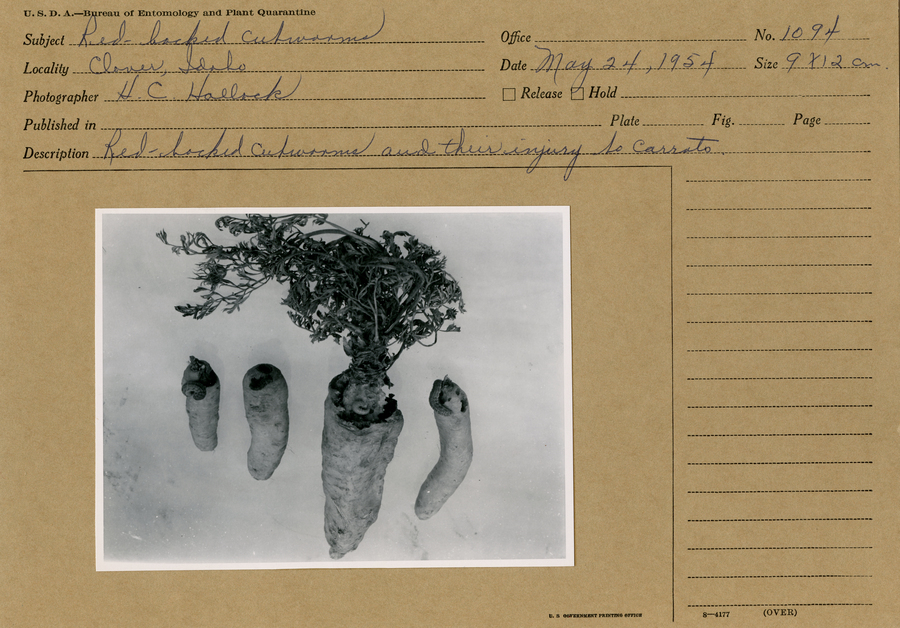 U. S. D. A.—Bureau of Entomology and Plant Quarantine
Subject Red-backed cutworms Office No. 1094
Locality Clover, Idaho Date May 24, 1954 Size 9 X 12 cm.
Photographer H. C. Hallock Release Hold
Published in Plate Fig. Page
Description Red-backed cutworms and their injury to carrots.
U. S. GOVERNMENT PRINTING OFFICE
8—4177 (OVER)